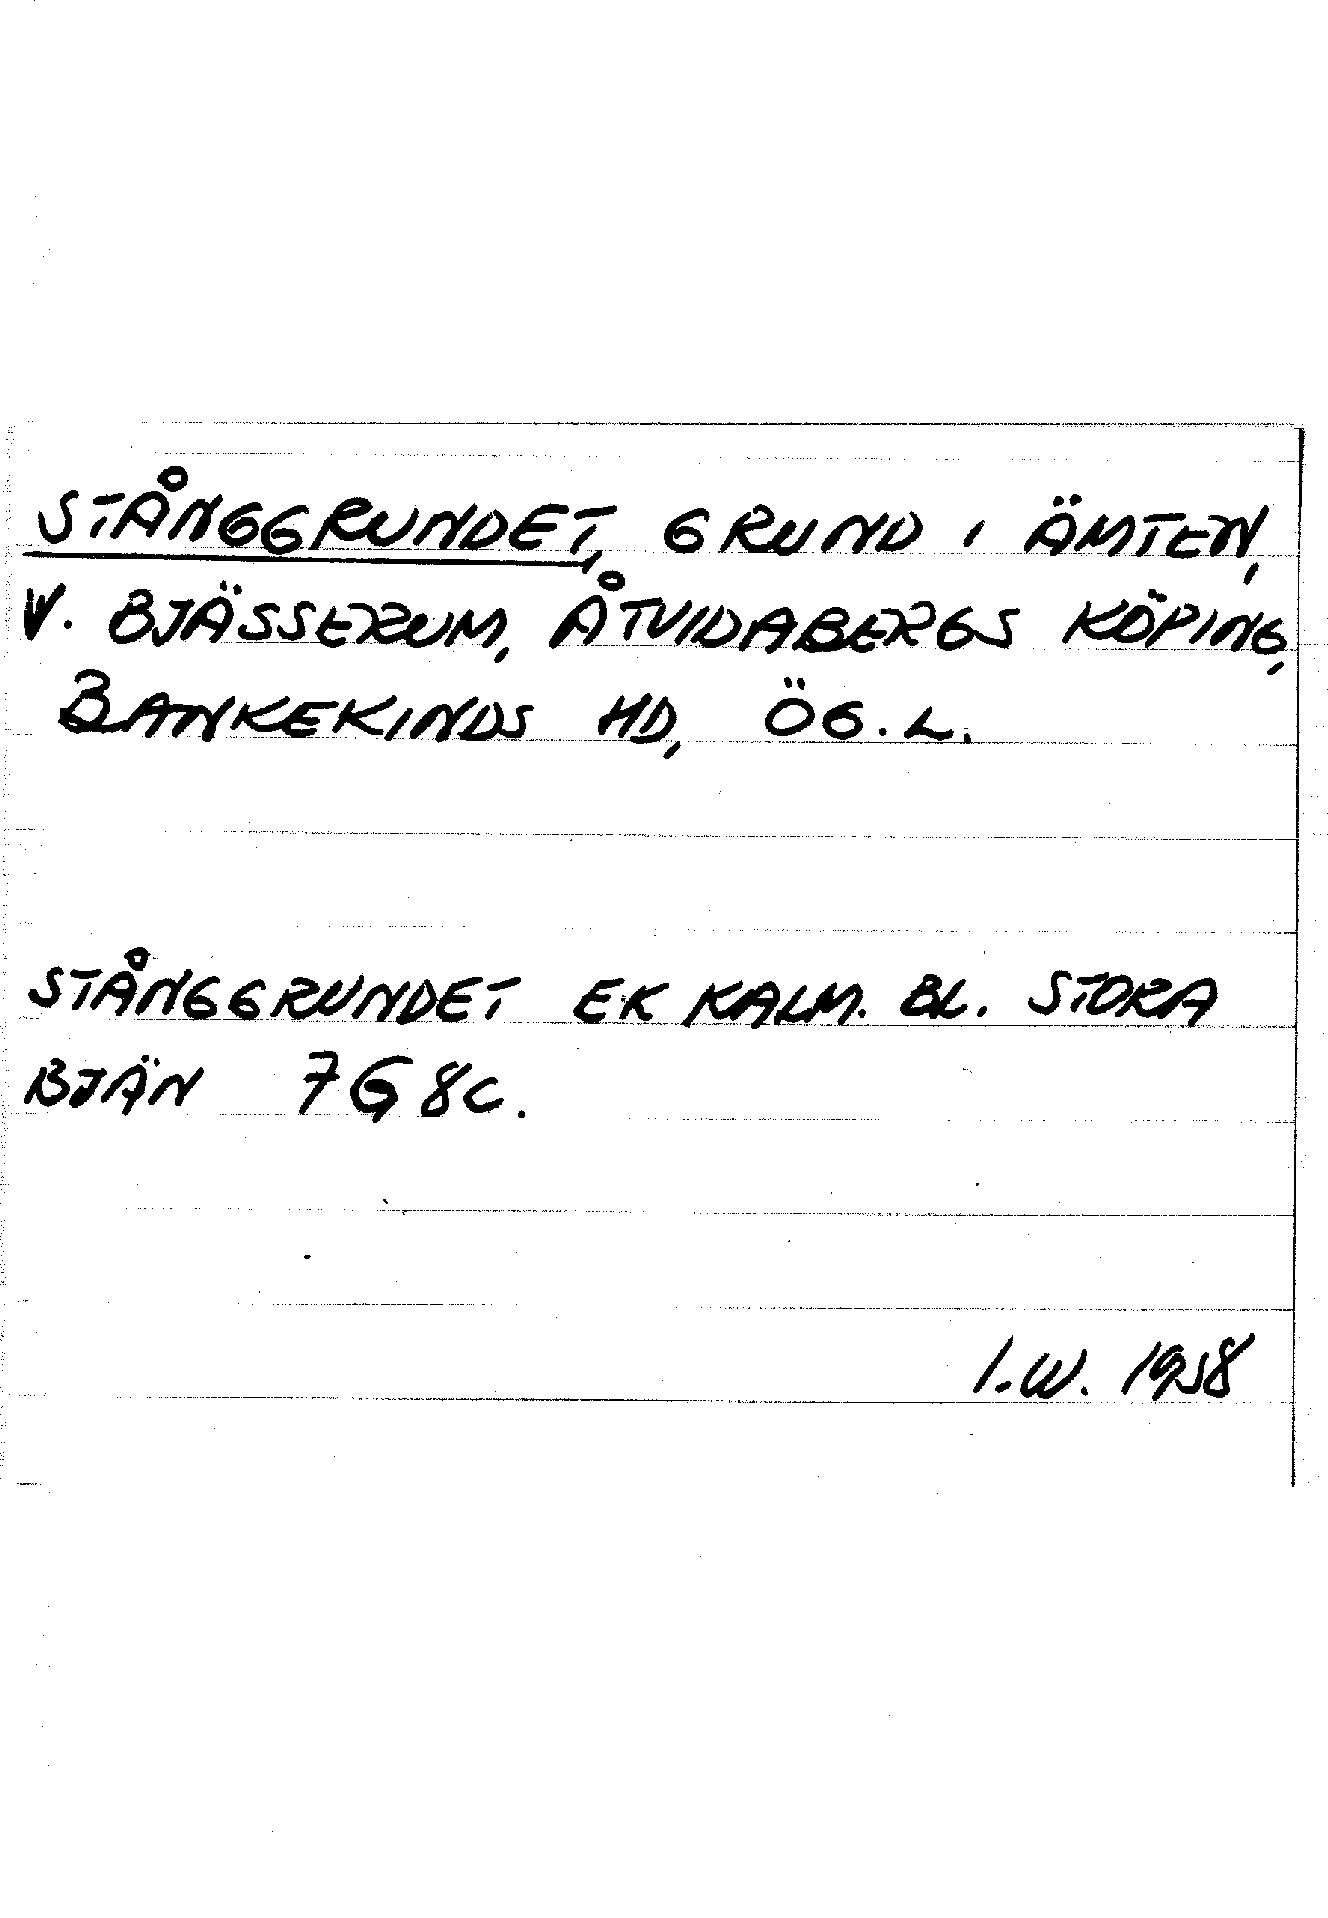 STÅNGGRUNDET, GRUND I ÄMTEN,
V. BJÄSSERUM, ÅTVIDABERGS KÖPING,
BANKEKINDS HD, ÖG.L.
STÅNGGRUNDET EK KALM. BL. STORA
BJÄN 7G8C.
I.W. 1958